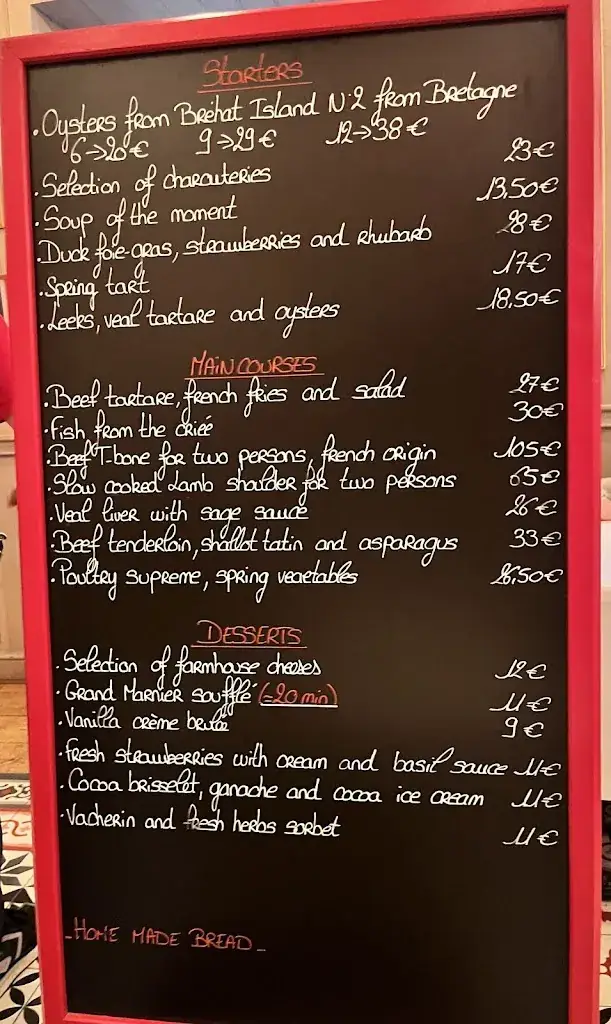 Starters
. Oysters from Bréhat Island N°2 from Bretagne
6→20€ 9→29€ 12→38€
. Selection of charcuteries 23€
. Soup of the moment 13,50€
. Duck foie-gras, strawberries and rhubarb 28€
. Spring tart 17€
. Leeks, veal tartare and oysters 18,50€
MAIN COURSES
. Beef tartare, french fries and salad 27€
. Fish from the criée 30€
. Beef T-bone for two persons, french origin 105€
. Slow cooked Lamb shoulder for two persons 65€
. Veal liver with sage sauce 26€
. Beef tenderloin, shallot tatin and asparagus 33€
. Poultry supreme, spring vegetables 26,50€
DESSERTS
. Selection of farmhouse cheeses 12€
. Grand Marnier soufflé (=20 min) 11€
. Vanilla crème brulée 9€
. Fresh strawberries with cream and basil sauce 11€
. Cocoa brisselet, ganache and cocoa ice cream 11€
. Vacherin and fresh herbs sorbet 11€
- HOME MADE BREAD -